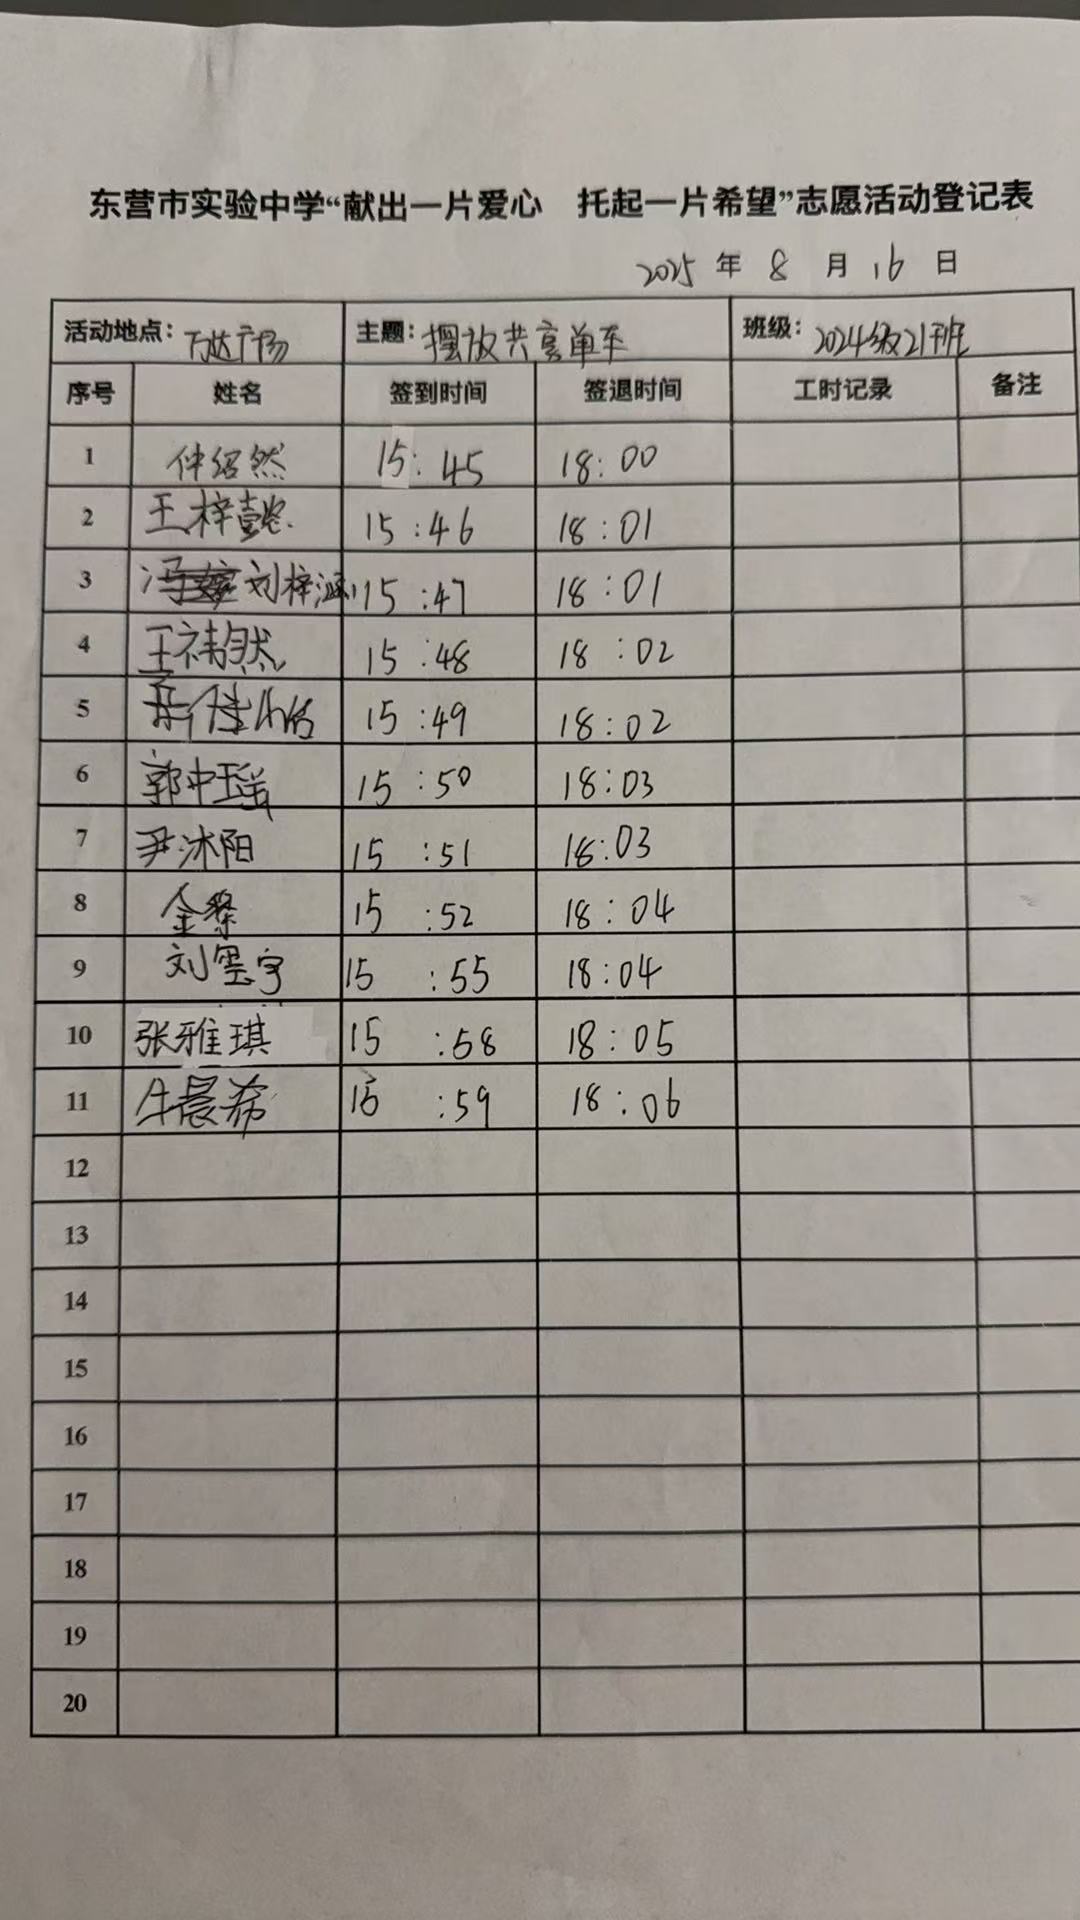 东营市实验中学“献出一片爱心 托起一片希望”志愿活动登记表
2025 年 8 月 16 日
活动地点：万达广场 主题：摆放共享单车 班级：2024级21班
序号 姓名 签到时间 签退时间 工时记录 备注
1 仲绍然 15:45 18:00
2 王梓懿 15:46 18:01
3 刘梓涵 15:47 18:01
4 王祎然 15:48 18:02
5 15:49 18:02
6 郭中瑶 15:50 18:03
7 尹沐阳 15:51 18:03
8 金燊 15:52 18:04
9 刘墨宇 15:55 18:04
10 张雅琪 15:58 18:05
11 牛晨希 15:59 18:06
12
13
14
15
16
17
18
19
20